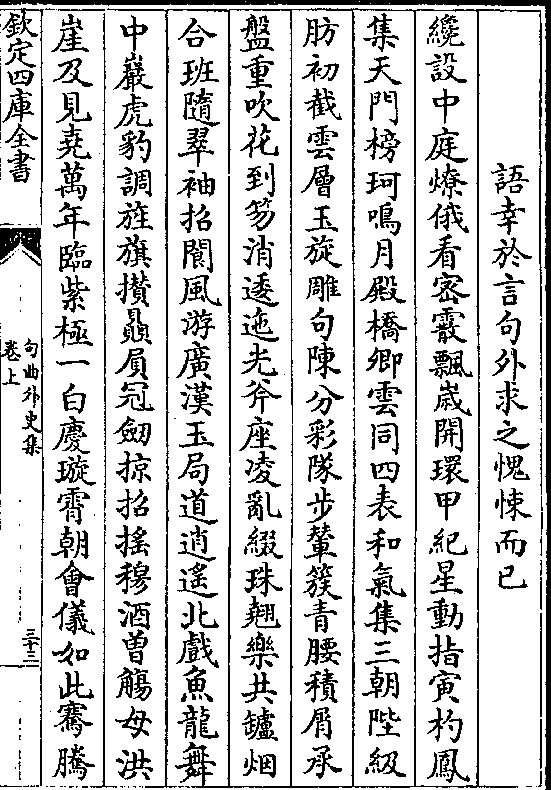 語幸於言句外求之愧悚而已
纔設中庭燎俄看密霰飄嵗開環甲紀星動指寅杓鳳
集天門榜珂鳴月殿橋卿雲同四表和氣集三朝陛級
肪初截雲層玉旋雕句陳分彩隊步輦簇青腰積屑承
盤重吹花到笏消逶迤光斧座凌亂綴珠翹樂共鑪烟
合班隨翠袖招閬風游廣漢玉局道逍遙北戲魚龍舞
中巖虎豹調旌旗攢贔屓冠劒掠招搖穆酒曽觴母洪
崖及見堯萬年臨紫極一白慶璇霄朝會儀如此騫騰
欽定四庫全書
句曲外史集
卷上
三十三